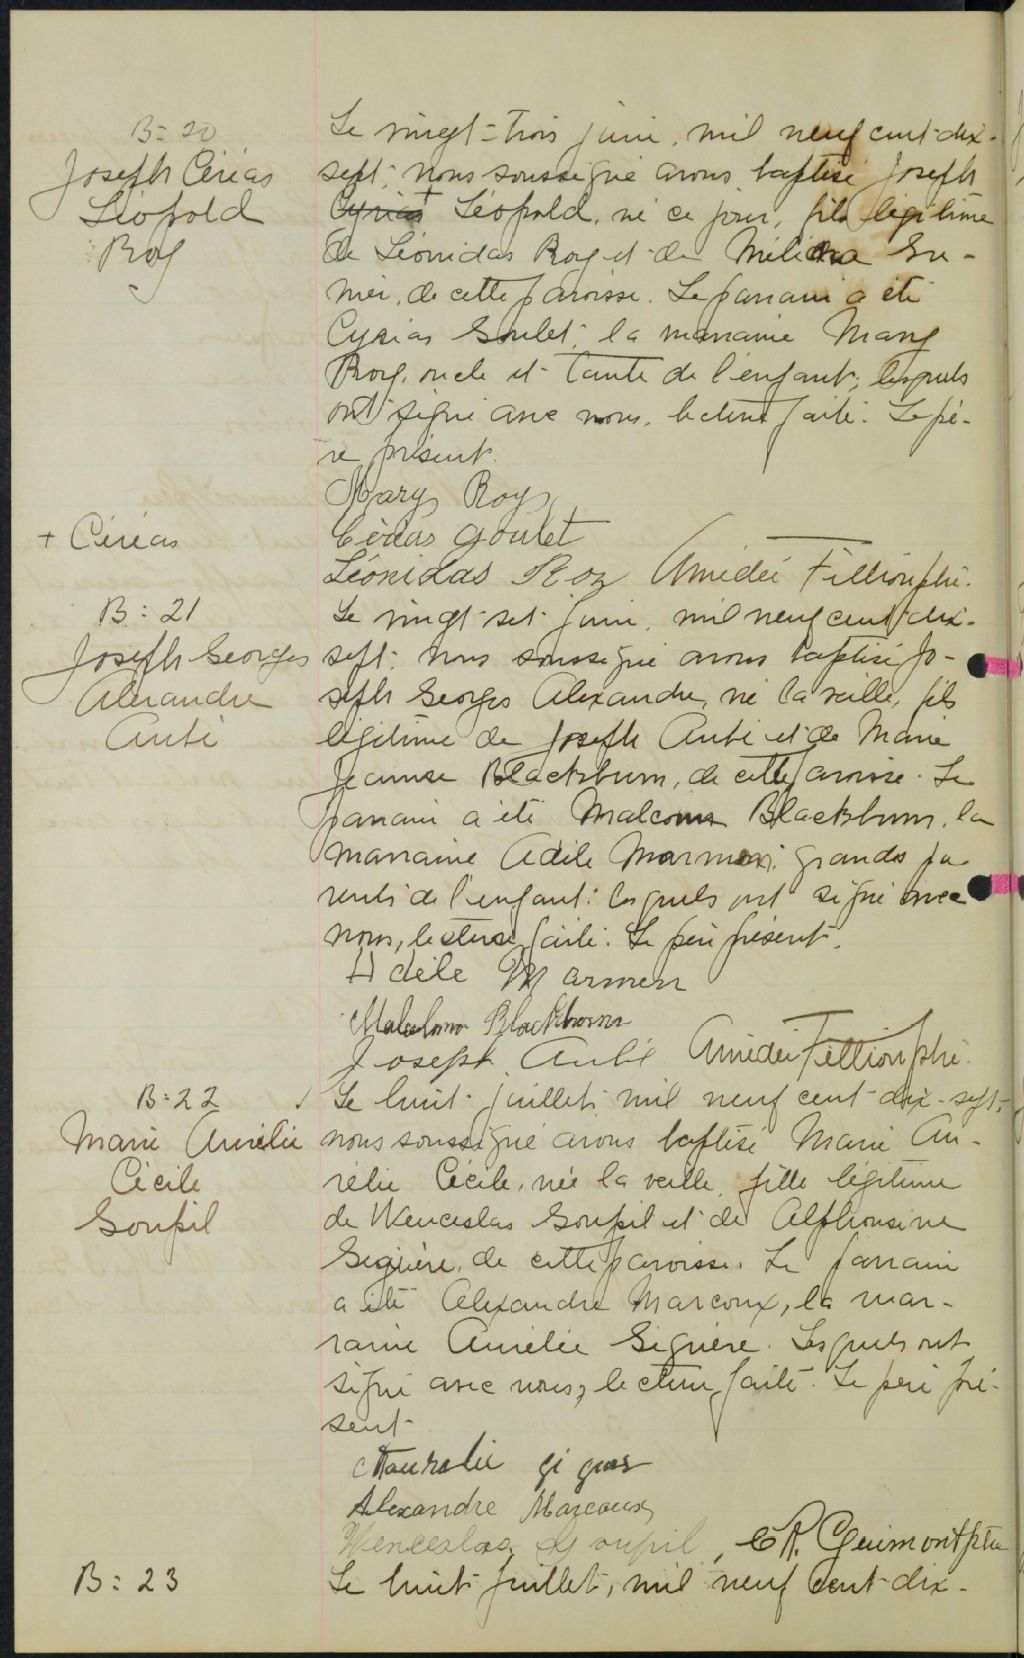 B = 20
Joseph Ciréas
Léopold
Roy
Le vingt-trois juin, mil neuf cent-dix-
sept, nous soussigné avons baptisé Joseph
Cyrias + Léopold, né ce jour, fils légitime
de Léonidas Roy et de Gre-
nier, de cette paroisse. Le parrain a été
Cyrias Goulet, la marraine Mary
Roy, oncle et tante de l'enfant; lesquels
ont signé avec nous, lecture faite. Le pè-
re présent.
Mary Roy
+ Ciréas
Goulet
Léonidas Roy Amédée Fillion ptre.
B : 21
Joseph Georges
Alexandre
Aubé
Le vingt-sept juin, mil neuf cent dix-
sept, nous soussigné avons baptisé Jo-
seph Georges Alexandre, né la veille, fils
légitime de Joseph Aubé et de Marie
Jeanne Blackburn, de cette paroisse. Le
parrain a été Malcom Blackburn, la
marraine Adèle Marmen, grands pa-
rents de l'enfant: lesquels ont signé avec
nous, lecture faite. Le père présent.
Adèle Marmen
Blackburn
Joseph Aubé Amédée Fillion ptre.
B : 22
Marie Aurélie
Cécile
Goupil
Le huit juillet mil neuf cent-dix-sept,
nous soussigné avons baptisé Marie Au-
rélie Cécile, née la veille, fille légitime
de Wenceslas Goupil et de Alphonsine
Giguère, de cette paroisse. Le parrain
a été Alexandre Marcoux, la mar-
raine Aurélie Giguère. Lesquels ont
signé avec nous, lecture faite. Le père pré-
sent.
Alexandre Marcoux
Wenceslas Goupil, Guimont ptre
B : 23
Le huit juillet, mil neuf cent-dix-